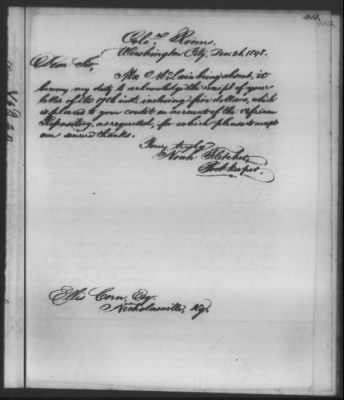 Colo. Rooms
Washington City, Dec 26, 1848.
Dear Sir,
Mr. McLain being absent, it
becomes my duty to acknowledge the receipt of your
letter of the inst. inclosing five dollars, which
is placed to your credit on account of the African
Repository, as requested, for which please to accept
our sincere thanks.
Yours truly
Noah Fletcher
Book keeper.
Ellis Corn, Esq.
Nicholasville, Ky.